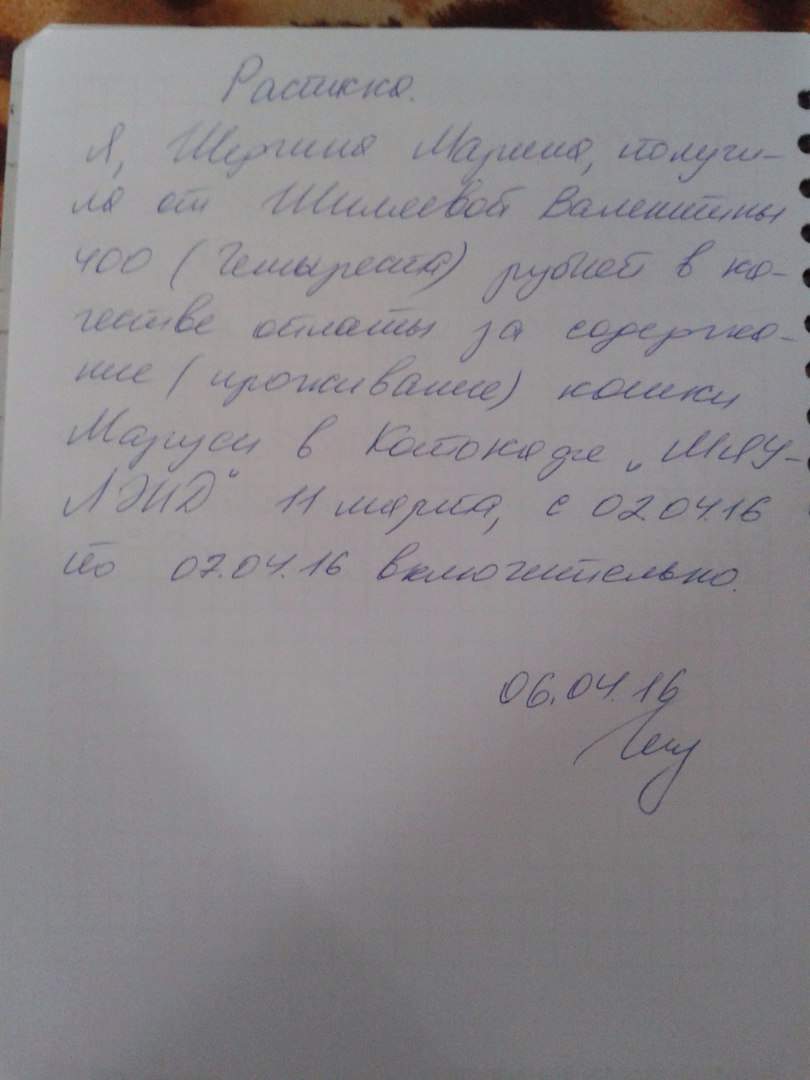 Расписка.
Я, Шергина Марина, получи-
ла от Шиляевой Валентины
400 (Четыреста) рублей в ка-
честве оплаты за содержа-
ние (проживание) кошки
Маруси в Котокафе „МЯУ-
ЛЭНД" 11 марта, с 02.04.16
по 07.04.16 включительно.
06.04.16